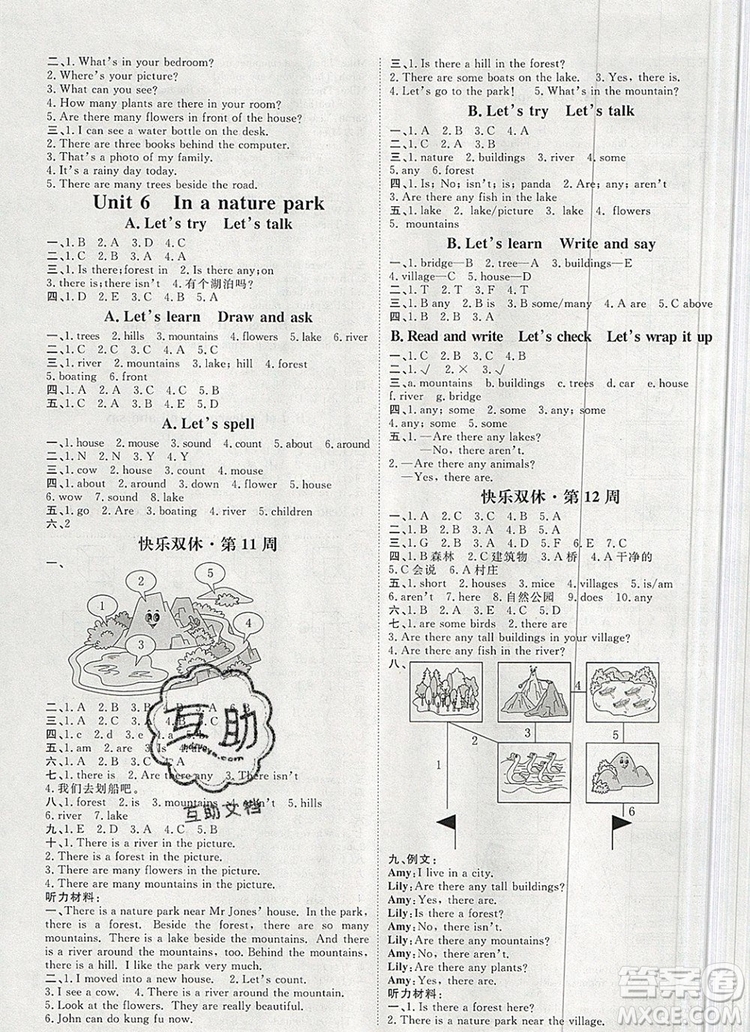 二、1. What's in your bedroom?
2. Where's your picture?
3. What can you see?
4. How many plants are there in your room?
5. Are there many flowers in front of the house?
三、1. I can see a water bottle on the desk.
2. There are three books behind the computer.
3. That's a photo of my family.
4. It's a rainy day today.
5. There are many trees beside the road.
Unit 6 In a nature park
A. Let's try Let's talk
一、1. B 2. A 3. D 4. C
三、1. Is there;forest in 2. Is there any;on
3. there is;there isn't 4. 有个湖泊吗?
四、1. D 2. E 3. C 4. A 5. B
A. Let's learn Draw and ask
一、1. trees 2. hills 3. mountains 4. flowers 5. lake 6. river
二、1. C 2. A 3. C 4. A 5. C
三、1. river 2. mountains 3. lake; hill 4. forest
5. boating 6. front
五、1. D 2. A 3. E 4. C 5. B
A. Let's spell
一、1. house 2. mouse 3. sound 4. count 5. about 6. around
三、1. B 2. A 3. C 4. B 5. A
四、1. house 2. mouse 3. down 4. flower 5. about
6. wow 7. sound 8. count
五、1. go 2. Are 3. boating 4. river 5. children
六、2
快乐双休·第 11 周
一、
1
2
3
4
5
二、1. A 2. B 3. A 4. C 5. B
三、1. B 2. A 3. C 4. B 5. A
四、1. c 2. d 3. b 4. a
五、1. am 2. Is 3. Are
六、1. A 2. C 3. B
七、1. there is 2. Are there any 3. There isn't
4. 我们去划船吧。
八、1. forest 2. is 3. mountains 4. isn't 5. hill
6. river 7. lake
九、1. B 2. D 3. A 4. C
十、1. There is a river in the picture.
2. There is a forest in the picture.
3. There are many flowers in the picture.
4. There are many mountains in the picture.
听力材料:
一、There is a nature park near Mr Jones' house. In the park,
there is a forest. Beside the forest, there are so many
mountains. There is a lake beside the mountains. And there
is a river around the mountains, too. Behind the mountains,
there is a hill. I like the park very much.
二、1. I moved into a new house. 2. I can't count.
3. I see a cow. 4. There is a river around the mountains.
5. Look at the flowers. 6. There is a lake in the picture.
6. John can do kung fu now.
三、1. Is there a hill in the forest?
2. There are some boats on the lake. 3. Yes, there is.
4. Let's go to the park! 5. What's in the mountain?
B. Let's try Let's talk
一、1. A 2. B 3. C 4. A
三、1. nature 2. buildings 3. river 4. some
5. any 6. forest
四、1. Is; No; isn't; is; panda 2. Are; any; aren't
3. Are there any fish in the lake
五、1. lake 2. lake/picture 3. lake 4. flowers
5. mountains
B. Let's learn Write and say
一、1. bridge—B 2. tree—A 3. buildings—E
4. village—C 5. house—D
二、1. T 2. T 3. F 4. F
三、1. B any 2. B is 3. B some/many 4. A are
四、1. C 2. D 3. E 4. A 5. B
B. Read and write Let's check Let's wrap it up
一、1. B 2. C 3. A 4. A 5. B
二、1. √ 2. × 3. √
三、a. mountains b. buildings c. trees d. car e. house
f. river g. bridge
四、1. any; some 2. any; some 3. any; some
4. any; some 5. some
五、1. —Are there any lakes?
—No, there aren't.
2. —Are there any animals?
—Yes, there are.
快乐双休·第 12 周
一、1. C 2. C 3. C 4. B 5. A
三、1. G 2. E 3. B 4. D 5. F 6. A 7. C
四、1. B森林 2. C建筑物 3. A桥 4. A干净的
5. C会说 6. A村庄
五、1. short 2. houses 3. mice 4. villages 5. is/am
6. aren't 7. here 8. 自然公园 9. does 10. any
六、1. C 2. B 3. D 4. A 5. C
七、1. are some birds 2. there are
3. Are there any tall buildings in your village?
4. Are there any fish in the river?
八、
4
3
5
1
2
6
九、例文:
Amy: I live in a city.
Lily: Are there any tall buildings?
Amy: Yes, there are.
Lily: Is there a forest?
Amy: No, there isn't.
Lily: Are there any mountains?
Amy: No, there aren't.
Lily: Are there any plants?
Amy: Yes, there are.
听力材料:
一、1. Is there a forest here?
2. There is a nature park near the village.
互助
互助文档
答案圈
MXQE.COM